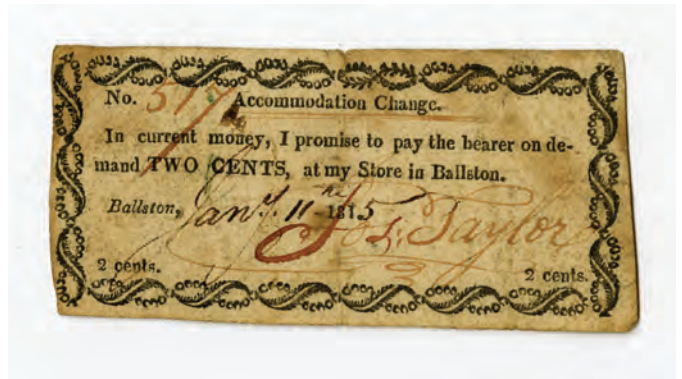 No. 517 Accommodation Change.
In current money, I promise to pay the bearer on de-
mand TWO CENTS, at my Store in Ballston.
Ballston, Jany. 11 the 1815 Taylor
2 cents. 2 cents.